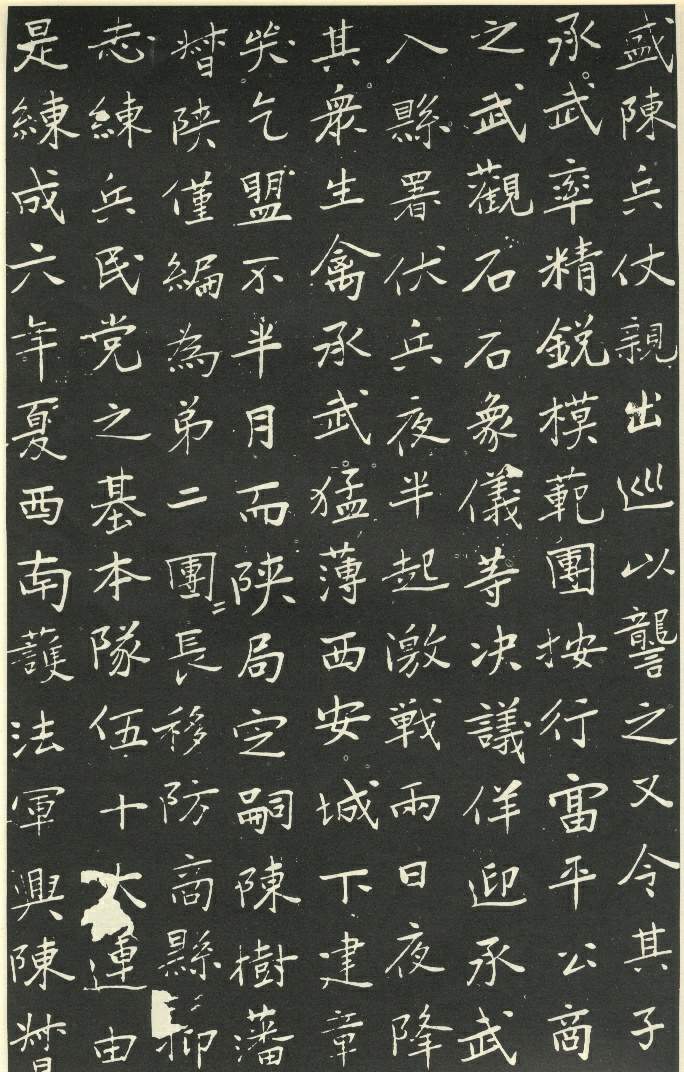 盛陳兵仗親出巡以讋之又令其子
承武率精銳模範團按行富平公商
之武觀石石象儀等决議佯迎承武
入縣署伏兵夜半起激戰兩日夜降
其眾生禽承武猛薄西安城下建章
柴乞盟不半月而陝局定嗣陳樹藩
督陝僅編為弟二團〻長移防商縣抑
志練兵民党之基本隊伍十大連由
是練成六年夏西南護法軍興陳督